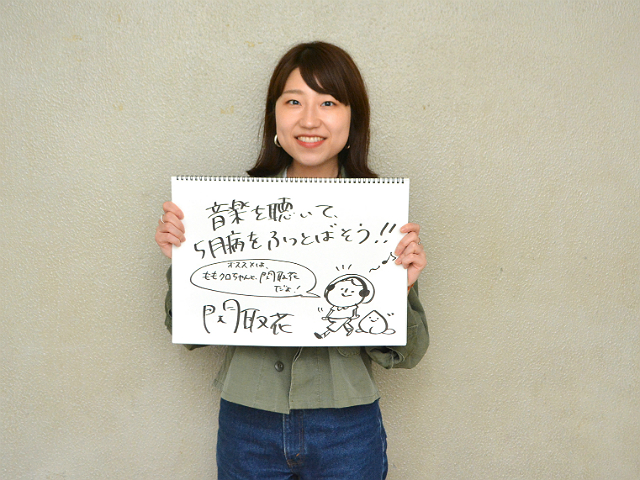 音楽を聴いて、
5月病をふっとばそう!!
オススメは、
ももクロちゃんと、関取花
だよ!
関取花